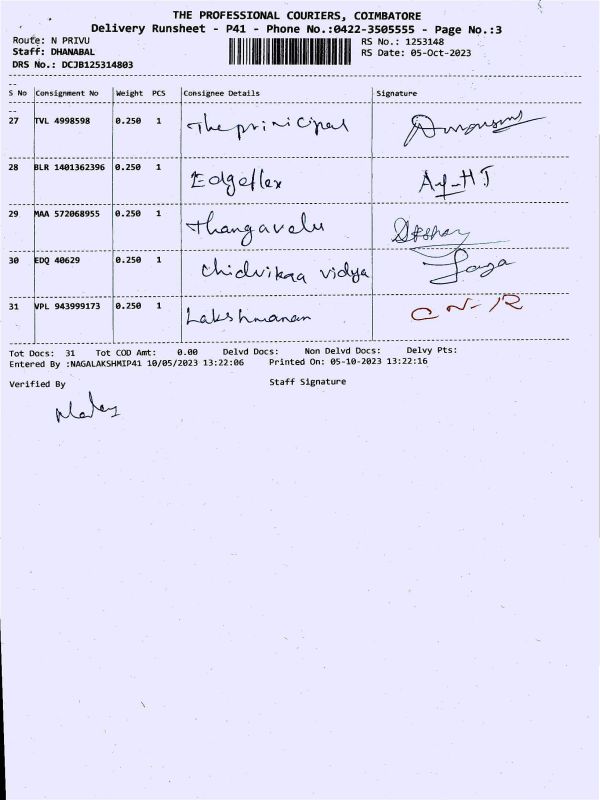 THE PROFESSIONAL COURIERS, COIMBATORE
Delivery Runsheet - P41 - Phone No.:0422-3505555 - Page No.:3
Route: N PRIVU RS No.: 1253148
Staff: DHANABAL RS Date: 05-Oct-2023
DRS No.: DCJB125314803
S No Consignment No Weight PCS Consignee Details Signature
27 TVL 4998598 0.250 1 The prinicipal
28 BLR 1401362396 0.250 1 Edgeflex
29 MAA 572068955 0.250 1 Thangavelu
30 EDQ 40629 0.250 1 Chidvikaa vidya
31 VPL 943999173 0.250 1 Lakshmanan C N-R
Tot Docs: 31 Tot COD Amt: 0.00 Delvd Docs: Non Delvd Docs: Delvy Pts:
Entered By :NAGALAKSHMIP41 10/05/2023 13:22:06 Printed On: 05-10-2023 13:22:16
Verified By Staff Signature